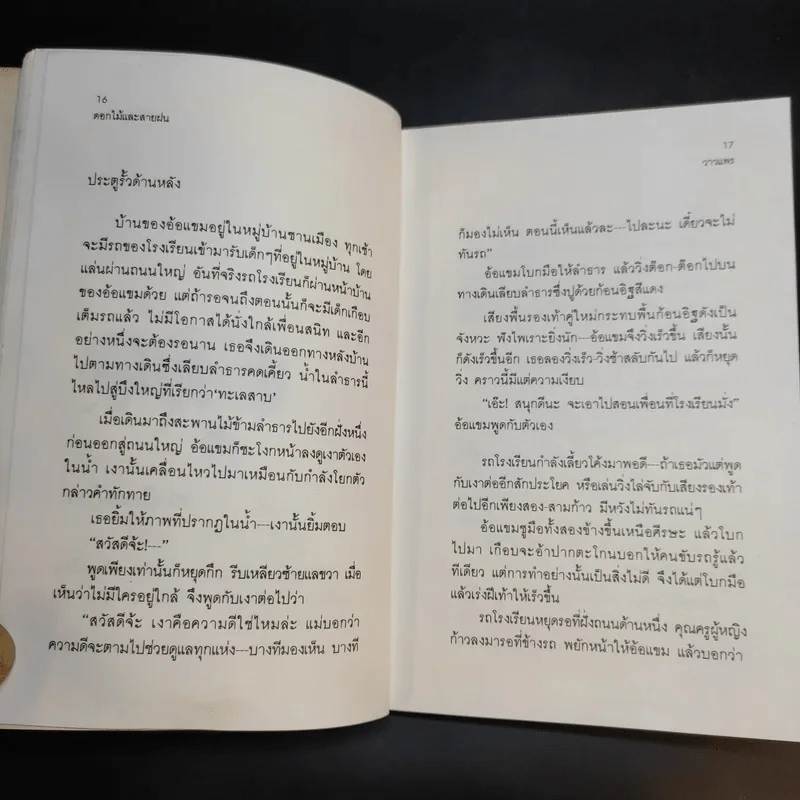 16
ดอกไม้และสายฝน
ประตูรั้วด้านหลัง
บ้านของอ้อแขมอยู่ในหมู่บ้านชานเมือง ทุกเช้า
จะมีรถของโรงเรียนเข้ามารับเด็กๆที่อยู่ในหมู่บ้าน โดย
แล่นผ่านถนนใหญ่ อันที่จริงรถโรงเรียนก็ผ่านหน้าบ้าน
ของอ้อแขมด้วย แต่ถ้ารอจนถึงตอนนั้นก็จะมีเด็กเกือบ
เต็มรถแล้ว ไม่มีโอกาสได้นั่งใกล้เพื่อนสนิท และอีก
อย่างหนึ่งจะต้องรอนาน เธอจึงเดินออกทางหลังบ้าน
ไปตามทางเดินซึ่งเลียบลำธารคดเคี้ยว น้ำในลำธารนี้
ไหลไปสู่บึงใหญ่ที่เรียกว่า‘ทะเลสาบ’
เมื่อเดินมาถึงสะพานไม้ข้ามลำธารไปยังอีกฝั่งหนึ่ง
ก่อนออกสู่ถนนใหญ่ อ้อแขมก็ชะโงกหน้าลงดูเงาตัวเอง
ในน้ำ เงานั้นเคลื่อนไหวไปมาเหมือนกับกำลังโยกตัว
กล่าวคำทักทาย
เธอยิ้มให้ภาพที่ปรากฏในน้ำ---เงานั้นยิ้มตอบ
“สวัสดีจ้ะ!---”
พูดเพียงเท่านั้นก็หยุดกึก รีบเหลียวซ้ายแลขวา เมื่อ
เห็นว่าไม่มีใครอยู่ใกล้ จึงพูดกับเงาต่อไปว่า
“สวัสดีจ้ะ เงาคือความดีใช่ไหมล่ะ แม่บอกว่า
ความดีจะตามไปช่วยดูแลทุกแห่ง---บางทีมองเห็น บางที
17
วาวแพร
ก็มองไม่เห็น ตอนนี้เห็นแล้วละ---ไปละนะ เดี๋ยวจะไม่
ทันรถ”
อ้อแขมโบกมือให้ลำธาร แล้ววิ่งต๊อก-ต๊อกไปบน
ทางเดินเลียบลำธารซึ่งปูด้วยก้อนอิฐสีแดง
เสียงพื้นรองเท้าคู่ใหม่กระทบพื้นก้อนอิฐดังเป็น
จังหวะ ฟังไพเราะยิ่งนัก---อ้อแขมจึงวิ่งเร็วขึ้น เสียงนั้น
ก็ดังเร็วขึ้นอีก เธอลองวิ่งเร็ว-วิ่งช้าสลับกันไป แล้วก็หยุด
วิ่ง คราวนี้มีแต่ความเงียบ
“เอ๊ะ! สนุกดีนะ จะเอาไปสอนเพื่อนที่โรงเรียนมั่ง”
อ้อแขมพูดกับตัวเอง
รถโรงเรียนกำลังเลี้ยวโค้งมาพอดี---ถ้าเธอมัวแต่พูด
กับเงาต่ออีกสักประโยค หรือเล่นวิ่งไล่จับกับเสียงรองเท้า
ต่อไปอีกเพียงสอง-สามก้าว มีหวังไม่ทันรถแน่ๆ
อ้อแขมชูมือทั้งสองข้างขึ้นเหนือศีรษะ แล้วโบก
ไปมา เกือบจะอ้าปากตะโกนบอกให้คนขับรถรู้แล้ว
ทีเดียว แต่การทำอย่างนั้นเป็นสิ่งไม่ดี จึงได้แต่โบกมือ
แล้วเร่งฝีเท้าให้เร็วขึ้น
รถโรงเรียนหยุดรอที่ฝั่งถนนด้านหนึ่ง คุณครูผู้หญิง
ก้าวลงมารอที่ข้างรถ พยักหน้าให้อ้อแขม แล้วบอกว่า